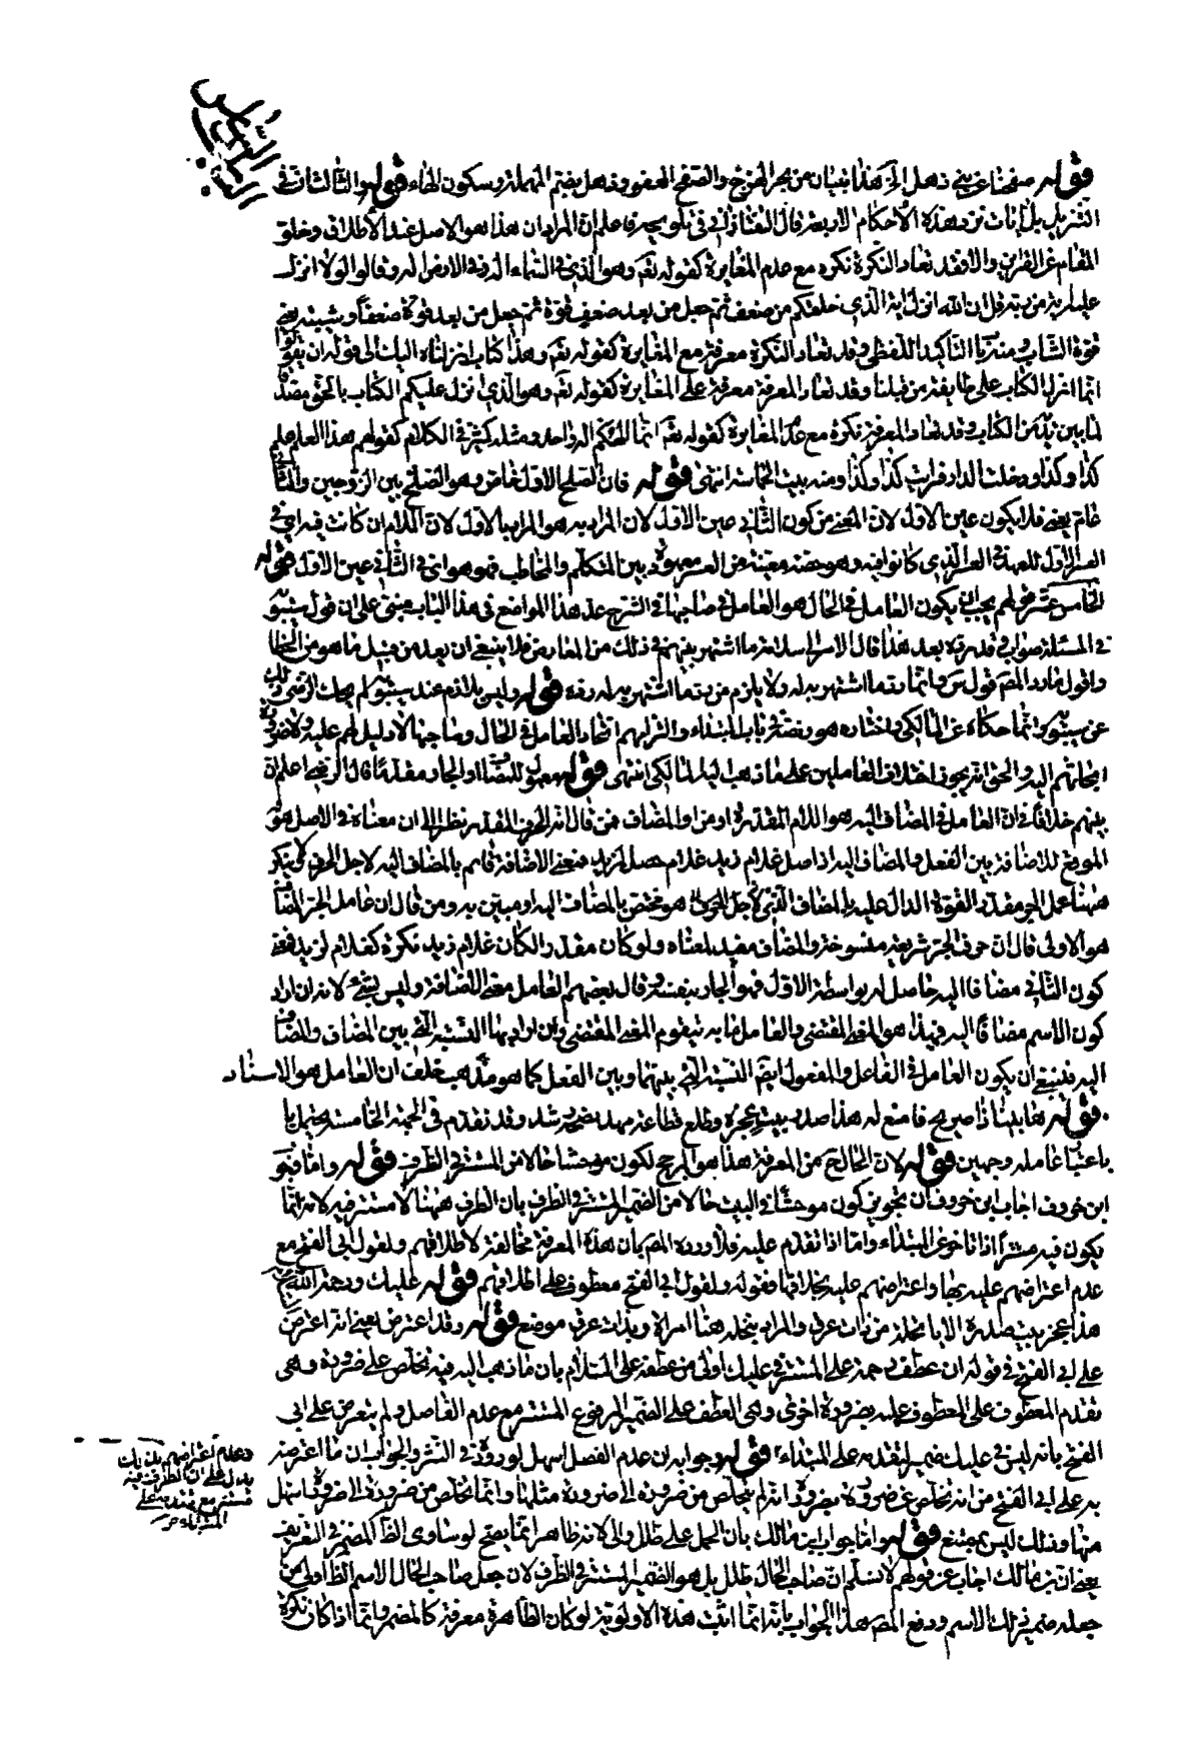 قوله صفحنا عن بني ذهل الخ هذا بيتان من بحر الهزج والصفح العفو وذهل بضم المهملة وسكون الهاء قوله والثالثة ان في
التنزيل بل ايات ترد هذه الأحكام الاربعة قال التفتازاني في تلويحه فاعلم ان المراد ان هذا هو الاصل عند الاطلاق وخلو
المقام عن القرائن والا فقد تعاد النكرة نكرة مع عدم المغايرة كقوله تعم وهو الذي في السماء اله وفي الارض اله وقالوا لولا انزل
عليه اية من ربه قل ان الله انزل اية الذي خلقكم من ضعف ثم جعل من بعد ضعف قوة ثم جعل من بعد قوة ضعفا وشيبة يعني
قوة الشباب ومنه باب التأكيد اللفظي وقد تعاد النكرة معرفة مع المغايرة كقوله تعم وهذا كتاب انزلناه اليك الى قوله ان يقولوا
انما انزل الكتاب على طايفتين من قبلنا وقد تعاد المعرفة معرفة على المغايرة كقوله تعم وهو الذي انزل عليكم الكتاب بالحق مصدقا
لما بين يديه من الكتاب وقد تعاد المعرفة نكرة مع عدم المغايرة كقوله تعم انما الهكم اله واحد ومثله كثير في الكلام كقولهم هذا العلم علم
كذا وكذا ودخلت الدار فرايت كذا وكذا ومنه بيت الحماسة انتهى قوله فان الصلح الاول خاص وهو الصلح بين الزوجين والثاني
عام يعني فلا يكون عين الاول لان المعني من كون الثاني عين الاول لان المراد به هو المراد بالاول لان اللام ان كانت فيه اي في
العسر الاول للعهد اي العسر الذي كانوا فيه وهو حصة معينة من العسر معهودة بين المتكلم والمخاطب فهو هو اي في الثاني عين الاول قوله
الخامس عشر قولهم يجب ان يكون العامل في الحال هو العامل في صاحبها في الشرح عد هذا المواضع في هذا الباب مبني على ان قول سيبويه
في المسئلة صواب وقد قرره بعد هذا قال الاسراسلانه ما اشتهر بينهم في ذلك من المعارض فلا ينبغي ان يعد من قبيل ماهو من الخطا
واقول مراد المصم قول س وانما رد ما اشتهر بدله ولا يلزم من رد ما اشتهر بدله رده قوله وليس بلازم عند سيبويه لم يحك الرضي ذلك
عن سيبويه وانما حكاه عن المالكي واختاره هو ونصه في باب المبتداء والتزامهم اتحاد العامل في الحال وصاحبها لا دليل لهم عليه ولا ضرورة
الجاتهم اليه والحق انه يجوز اختلاف العاملين على ما ذهب اليه المالكي انتهى قوله معمول للمضاف او الجار مقدرا قال الرضي اعلم ان
بينهم خلافا في ان العامل في المضاف اليه هو اللام المقدرة او من او المضاف فمن قال انه الحرف المقدر نظر الى ان معناه في الاصل هو
الموقع للاضافة بين الفعل والمضاف اليه اذ اصل غلام زيد غلام حصل لزيد فمعنى الاضافة قائم بالمضاف اليه لاجل الحرف لا ينكر
ههنا عمل الجر مقدرا لقوة الدال عليه بالمضاف الذي لاجل الحرف هو مختص بالمضاف اليه او مبين به ومن قال ان عامل الجر المضاف
هو الاولى قال ان حرف الجر شريعة منسوخة والمضاف مفيد لمعناه ولو كان مقدرا لكان غلام زيد نكرة كغلام لزيد فمعنى
كون الثاني مضافا اليه حاصل له بواسطة الاول فهو الجار بنفسه وقال بعضهم العامل معنى الاضافة وليس بشئ لانه ان اراد
كون الاسم مضافا اليه فهذا هو المعنى المقتضي والعامل ما به يتقوم المعنى المقتضي وان اراد بها النسبة التي بين المضاف والمضاف
اليه فينبغي ان يكون العامل في الفاعل والمفعول ايضا النسبة التي بينهما وبين الفعل كما هو مذهب خلف ان العامل هو الاسناد
قوله ها بينا ذا صريح فاصغ له هذا صدر بيت عجزه وطلع فطاعة مهد نصحه رشد وقد تقدم في الجهة الخامسة يحتمل يا
باعتبار عامله وجهين قوله لان الحال ح من المعرفة هذا هو المرجح لكون موحشا حالا من المستتر في الظرف قوله واما قبو
ابن خروف اجاب ابن خروف بان تجويز كون موحشا في البيت حالا من الضمير المستتر في الظرف بان الظرف ههنا لا مستتر فيه لانه انما
يكون فيه مستترا اذا تاخر عن المبتداء واما اذا تقدم عليه فلا ورده المصم بان هذه المعرفة مخالفة لاطلاقهم ولقول ابي الفتح مع
عدم اعتراضهم عليه بها واعتراضهم عليه بخلافها وقوله ولقول ابي الفتح معطوف على اطلاقهم قوله عليك ورحمة الله السلام
هذا عجز بيت صدره الا يا نخلة من ذات عرق والمراد بنخلة هنا امراة وبذات عرق موضع قوله وقد اعترض يعني انه اعترض
على ابي الفتح في قوله ان عطف رحمة على المستتر في عليك اولى من عطفه على السلام بان ما ذهب اليه فيه تخلص على ضرورة وهي
تقدم المعطوف على المعطوف عليه بضرورة اخرى وهي العطف على الضمير المرفوع المستتر مع عدم الفاصل ولم يتعرض على ابي
الفتح بانه ليس في عليك ضمير لتقدمه على المبتداء قوله وجوابه ان عدم الفصل اسهل لوروده في النثر والجواب ان ما اعترضه
به على ابي الفتح من انه تخلص عن ضرورة بضرورة انه لم يتخلص من ضرورة الى ضرورة مثلها وانما تخلص من ضرورة الى ضرورة اسهل
منها وذلك ليس بممتنع قوله واما جواب ابن مالك بان الحمل على طلل والى لانه ظاهر انما يصح لو ساوى الظاهر المضمر في التعريف
يعني ان ابن مالك اجاب عن قولهم لا نسلم ان صاحب الحال طلل بل هو الضمير المستتر في الظرف لان جعل صاحب الحال الاسم الظاهر اولى من
جعله ضمير ذلك الاسم ودفع المصم هذا الجواب بانه انما اثبت هذه الاولوية لو كان الظاهر معرفة كالمضمر وانما اذا كان نكرة
وعدم اعتراضهم بذلك
يدل على ان الظرف فيه
مستتر مع تقدمه على
المبتداء